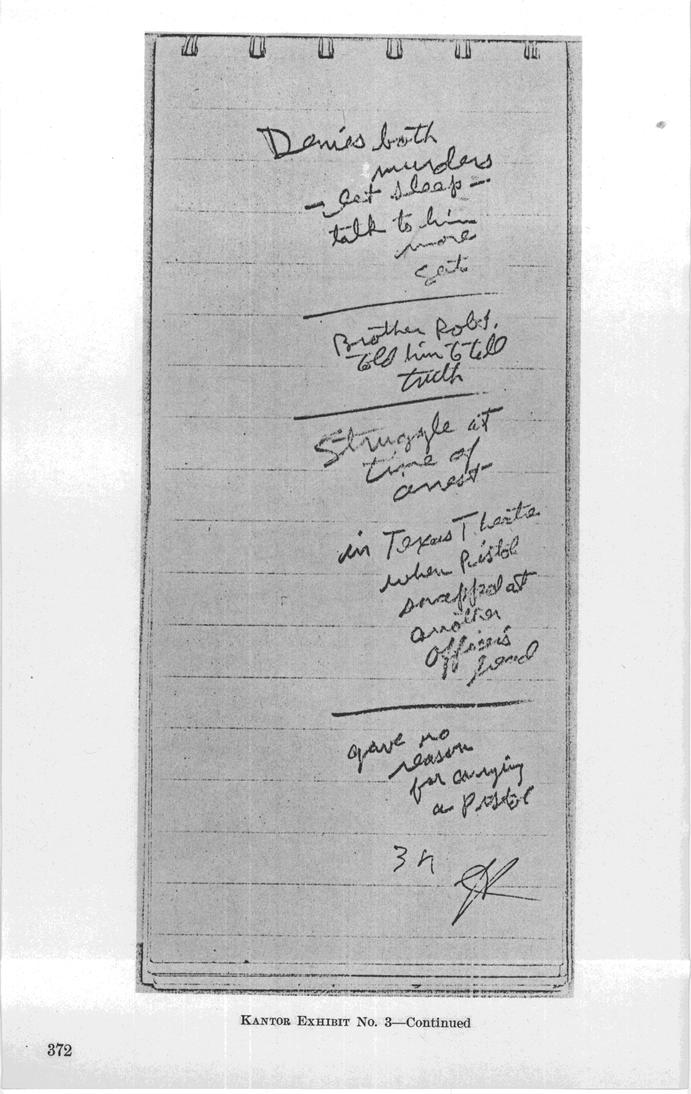 Denies both
murders
- let sleep -
talk to him
more
Sat.
Brother Robt.
told him to tell
truth
Struggle at
time of
arrest -
in Texas Theatre
when pistol
snapped at
another
officer's
head
gave no
reason
for carrying
a pistol
KANTOR EXHIBIT No. 3—Continued
372